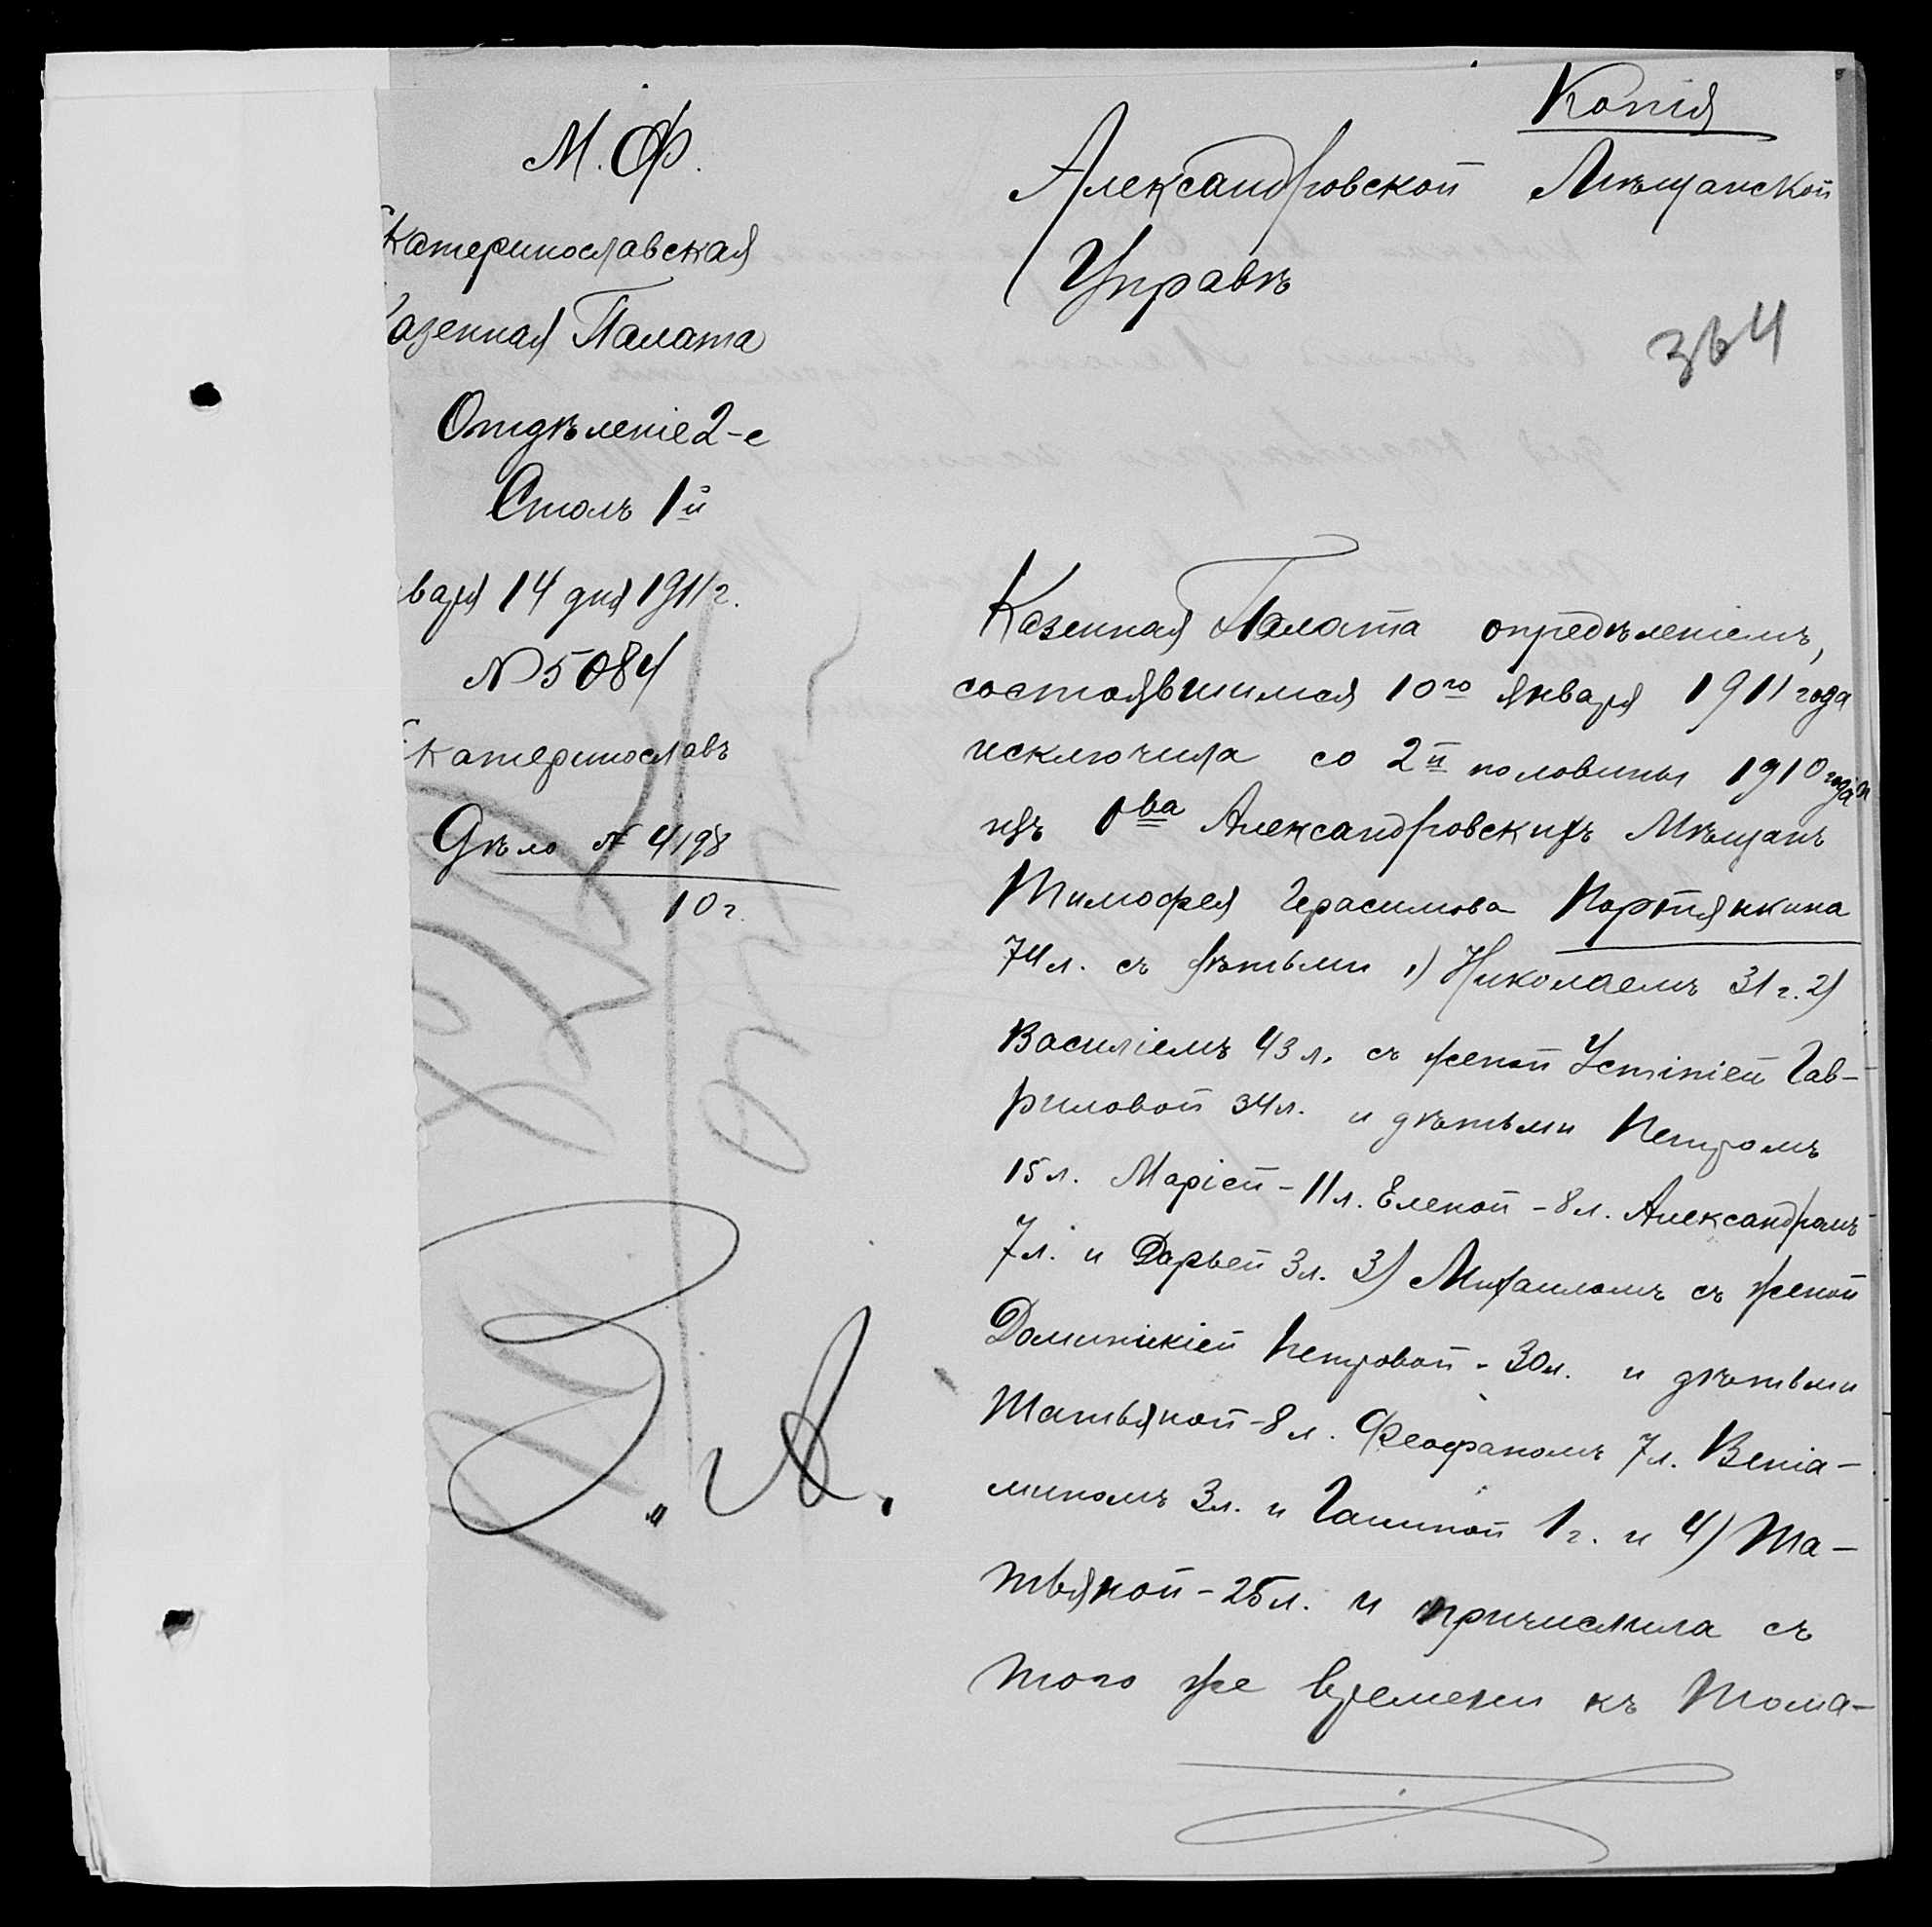 Копія
М. Ф.
Екатеринославская
Казенная Палата
Отдѣленіе 2-е
Столъ 1й
варя 14 дня 1911 г.
№ 5084
Екатеринославъ
Дѣло № 4198
10 г.
Александровской Мѣщанской
Управѣ
364
Казенная Палата опредѣленіемъ,
состоявшимся 10го января 1911 года
исключила со 2й половины 1910 года
изъ о-ва Александровскихъ Мѣщанъ
Тимофея Герасимова Портянкина
74 л. съ дѣтьми 1) Николаемъ 31 г. 2)
Василіемъ 43 л. съ женой Устиніей Гав-
риловой 34 л. и дѣтьми Петромъ
15 л. Маріей - 11 л. Еленой - 8 л. Александромъ
7 л. и Дарьей 3 л. 3) Михаиломъ съ женой
Доминикіей Петровой - 30 л. и дѣтьми
Татьяной - 8 л. Феофаномъ 7 л. Веніа-
миномъ 3 л. и Галиной 1 г. и 4) Та-
тьяной - 25 л. и причислила съ
того же времени къ Тома-